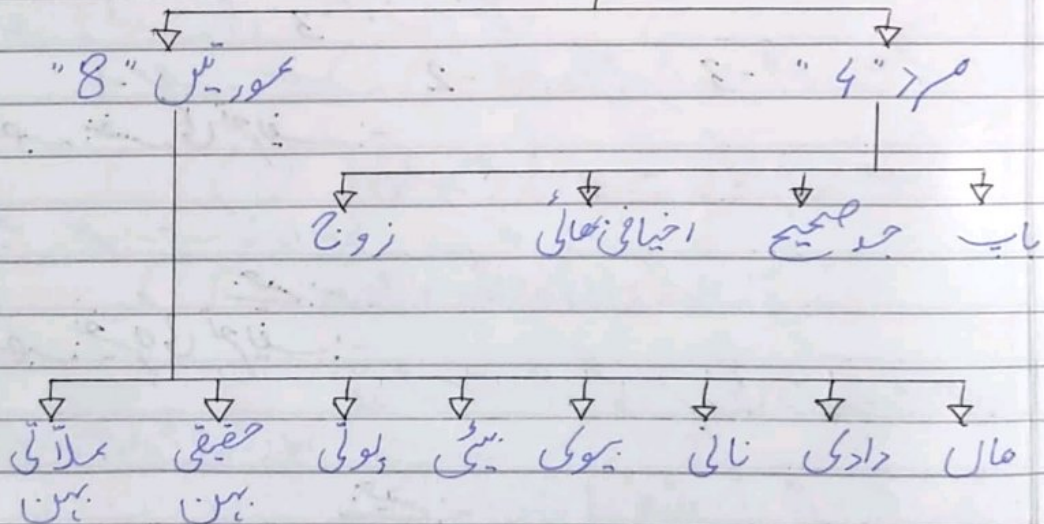 مرد "4" عورتیں "8"
باپ جد صحیح اخیافی بھائی زوج
ماں دادی نانی بیوی بیٹی پوتی حقیقی بہن علاتی بہن